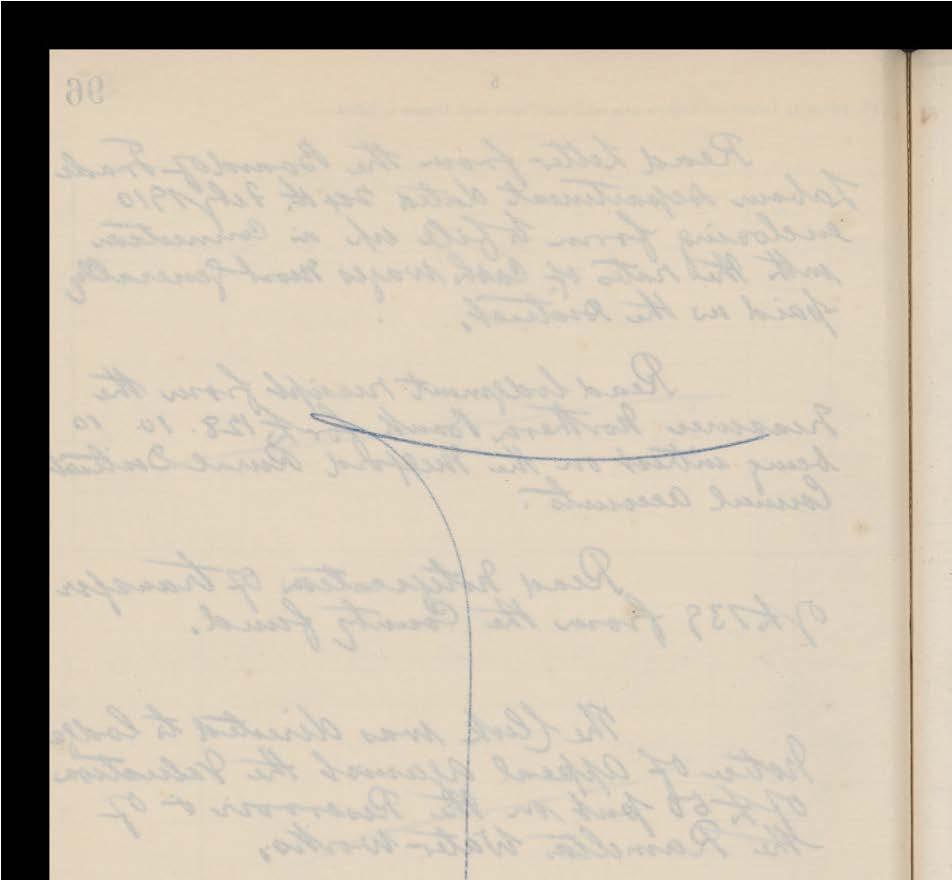 96
Read letter from the Board of Trade
Labour Department dated 24th Feby 1910
enclosing form to fill up in connection
with the rate of Cash Wages most generally
paid in the District.
Read Lodgment receipt from the
Treasurer Northern Bank for £128. 10. 10
being interest on the Milford Rural District
Council accounts.
Read notification of transfer
of £739 from the County fund.
The Clerk was directed to lodge
Notice of Appeal against the Valuation
of £50 put on the Reservoir & of
the Ramelton Water Works.